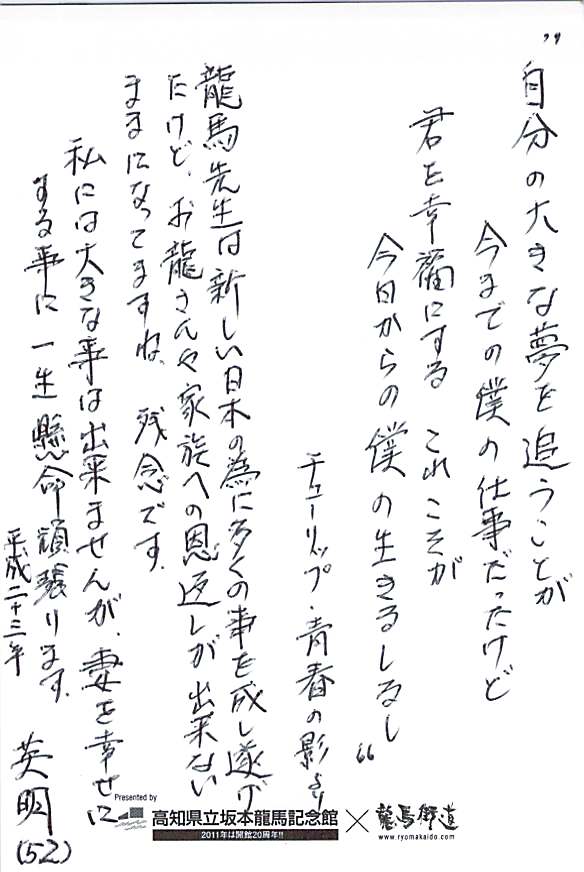 〃
自分の大きな夢を追うことが
今までの僕の仕事だったけど
君を幸福にする これこそが
今日からの僕の生きるしるし
〃
チューリップ・青春の影より
龍馬先生は新しい日本の為に多くの事を成し遂げ
たけど、お龍さんや家族への恩返しが出来ない
ままになってますね、残念です。
私には大きな事は出来ませんが、妻を幸せに
する事に一生懸命頑張ります。
平成二十三年
英明
(52)
Presented by
高知県立坂本龍馬記念館
2011年は開館20周年!!
×
龍馬街道
www.ryomakaido.com